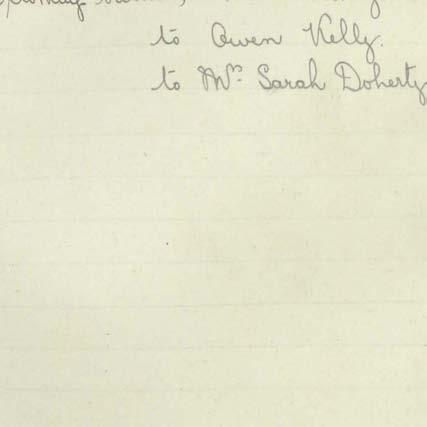 to Owen Kelly.
to Mrs. Sarah Doherty